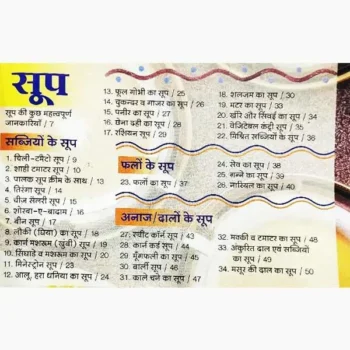 सूप
सूप की कुछ महत्वपूर्ण
जानकारियाँ / 7
सब्जियों के सूप
1. चिली-टमैटो सूप / 9
2. शाही टमाटर सूप / 10
3. पालक सूप क्रीम के साथ / 13
4. तिरंगा सूप / 14
5. चीज सेलरी सूप / 15
6. शोरबा-ए-बादाम / 16
7. बीन सूप / 17
8. लौकी (घिया) का सूप / 18
9. कार्न मशरूम (खुंबी) सूप / 19
10. सिंघाड़े व मशरूम का सूप / 20
11. मिनेस्ट्रोन सूप / 23
12. आलू, हरा धनिया का सूप / 24
13. फूल गोभी का सूप / 25
14. चुकन्दर व गाजर का सूप / 26
15. पनीर का सूप / 27
16. छेना ब्रही का सूप / 28
17. रशियन सूप / 29
18. शलजम का सूप / 30
19. मटर का सूप / 33
20. खीरे और सिवई का सूप / 34
21. वेजिटेबल कंट्री सूप / 35
22. मिश्रित सब्जियों का सूप / 36
फलों के सूप
23. फलों का सूप / 37
24. सेव का सूप / 38
25. गन्ने का सूप / 39
26. नारियल का सूप / 40
अनाज/दालों के सूप
27. स्वीट कॉर्न सूप / 43
28. कार्न कर्ड सूप / 44
29. मूँगफली का सूप / 45
30. बार्ली सूप / 46
31. काले चने का सूप / 47
32. मक्की व टमाटर का सूप / 48
33. अंकुरित दाल एवं सब्जियों
का सूप / 49
34. मसूर की दाल का सूप / 50